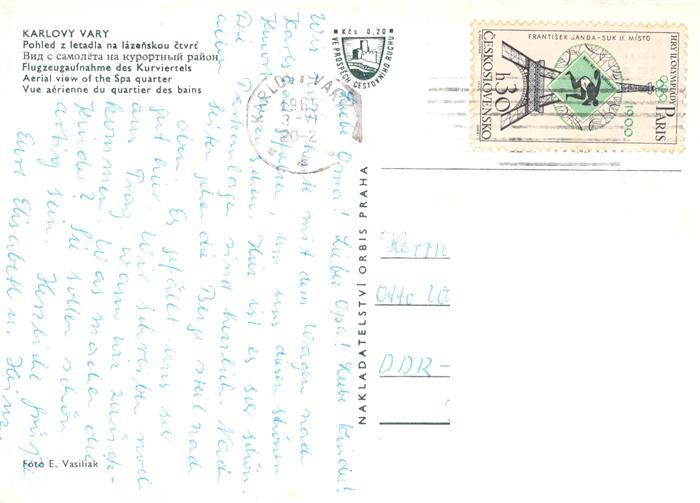 KARLOVY VARY
Pohled z letadla na lázeňskou čtvrť
Вид с самолёта на курортный район
Flugzeugaufnahme des Kurviertels
Aerial view of the Spa quarter
Vue aérienne du quartier des bains
Kčs 0,20
VE PROSPĚCH CESTOVNÍHO RUCHU
KARLOVY VARY
1965
20-2
FRANTIŠEK JANDA-SUK II. MÍSTO
ČESKOSLOVENSKO
h.30
HRY II. OLYMPIÁDY
PARIS
1900
Liebe Oma! Lieber Opa! Liebe Kinder!
Wir sind mit dem Wagen nach
Karls um uns diesen schönen
Kurort Hier ist es sehr schön.
Die Parkanlagen sind herrlich. Nach
allen Seiten gehen die Berge steil nach
oben. Es gefällt uns sehr
gut hier. Wir schreiben noch
aus Prag, wann wir zurück-
kommen. Was machen die
Kinder? Sie sollen schön
artig sein. Herzliche Grüße
Eure Elisabeth u. Heinz.
Herrn
Otto
DDR-
NAKLADATELSTVÍ ORBIS PRAHA
Foto E. Vasiliak